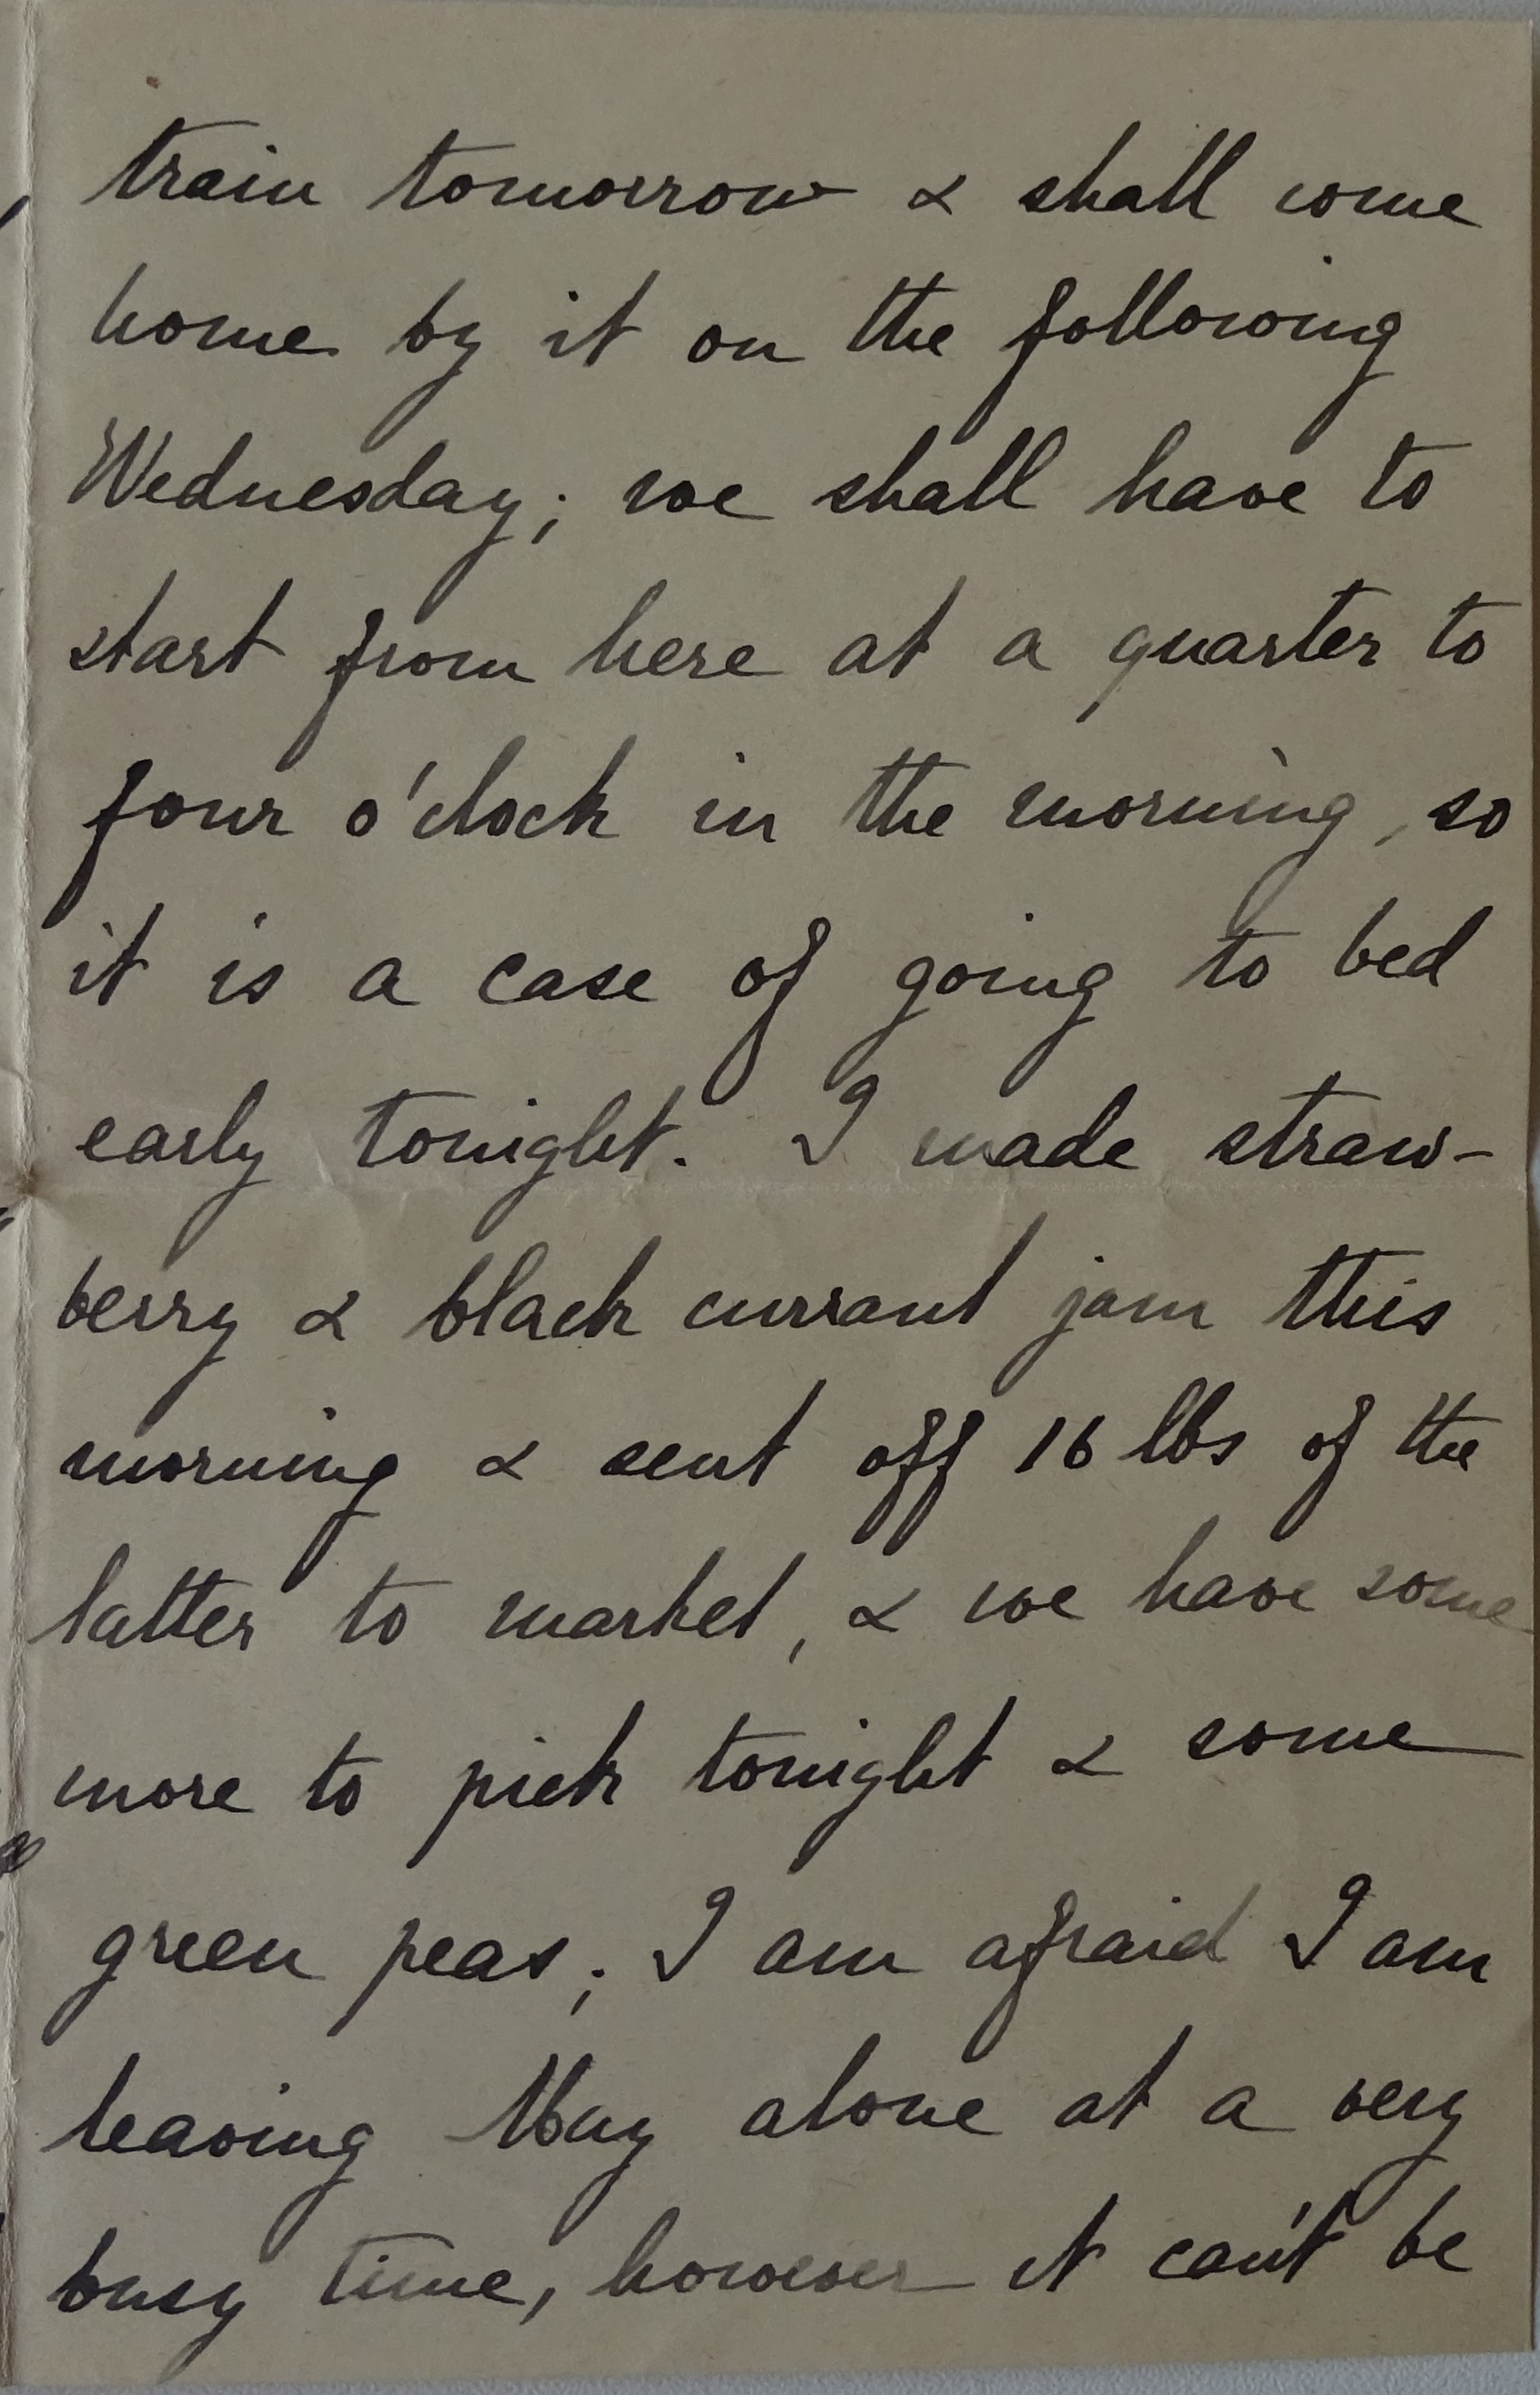 train tomorrow & shall come
home by it on the following
Wednesday; we shall have to
start from here at a quarter to
four o'clock in the morning, so
it is a case of going to bed
early tonight. I made straw-
berry & black currant jam this
morning & sent off 16 lbs of the
latter to market, & we have some
more to pick tonight & some
green peas; I am afraid I am
leaving May alone at a very
busy time, however it can't be